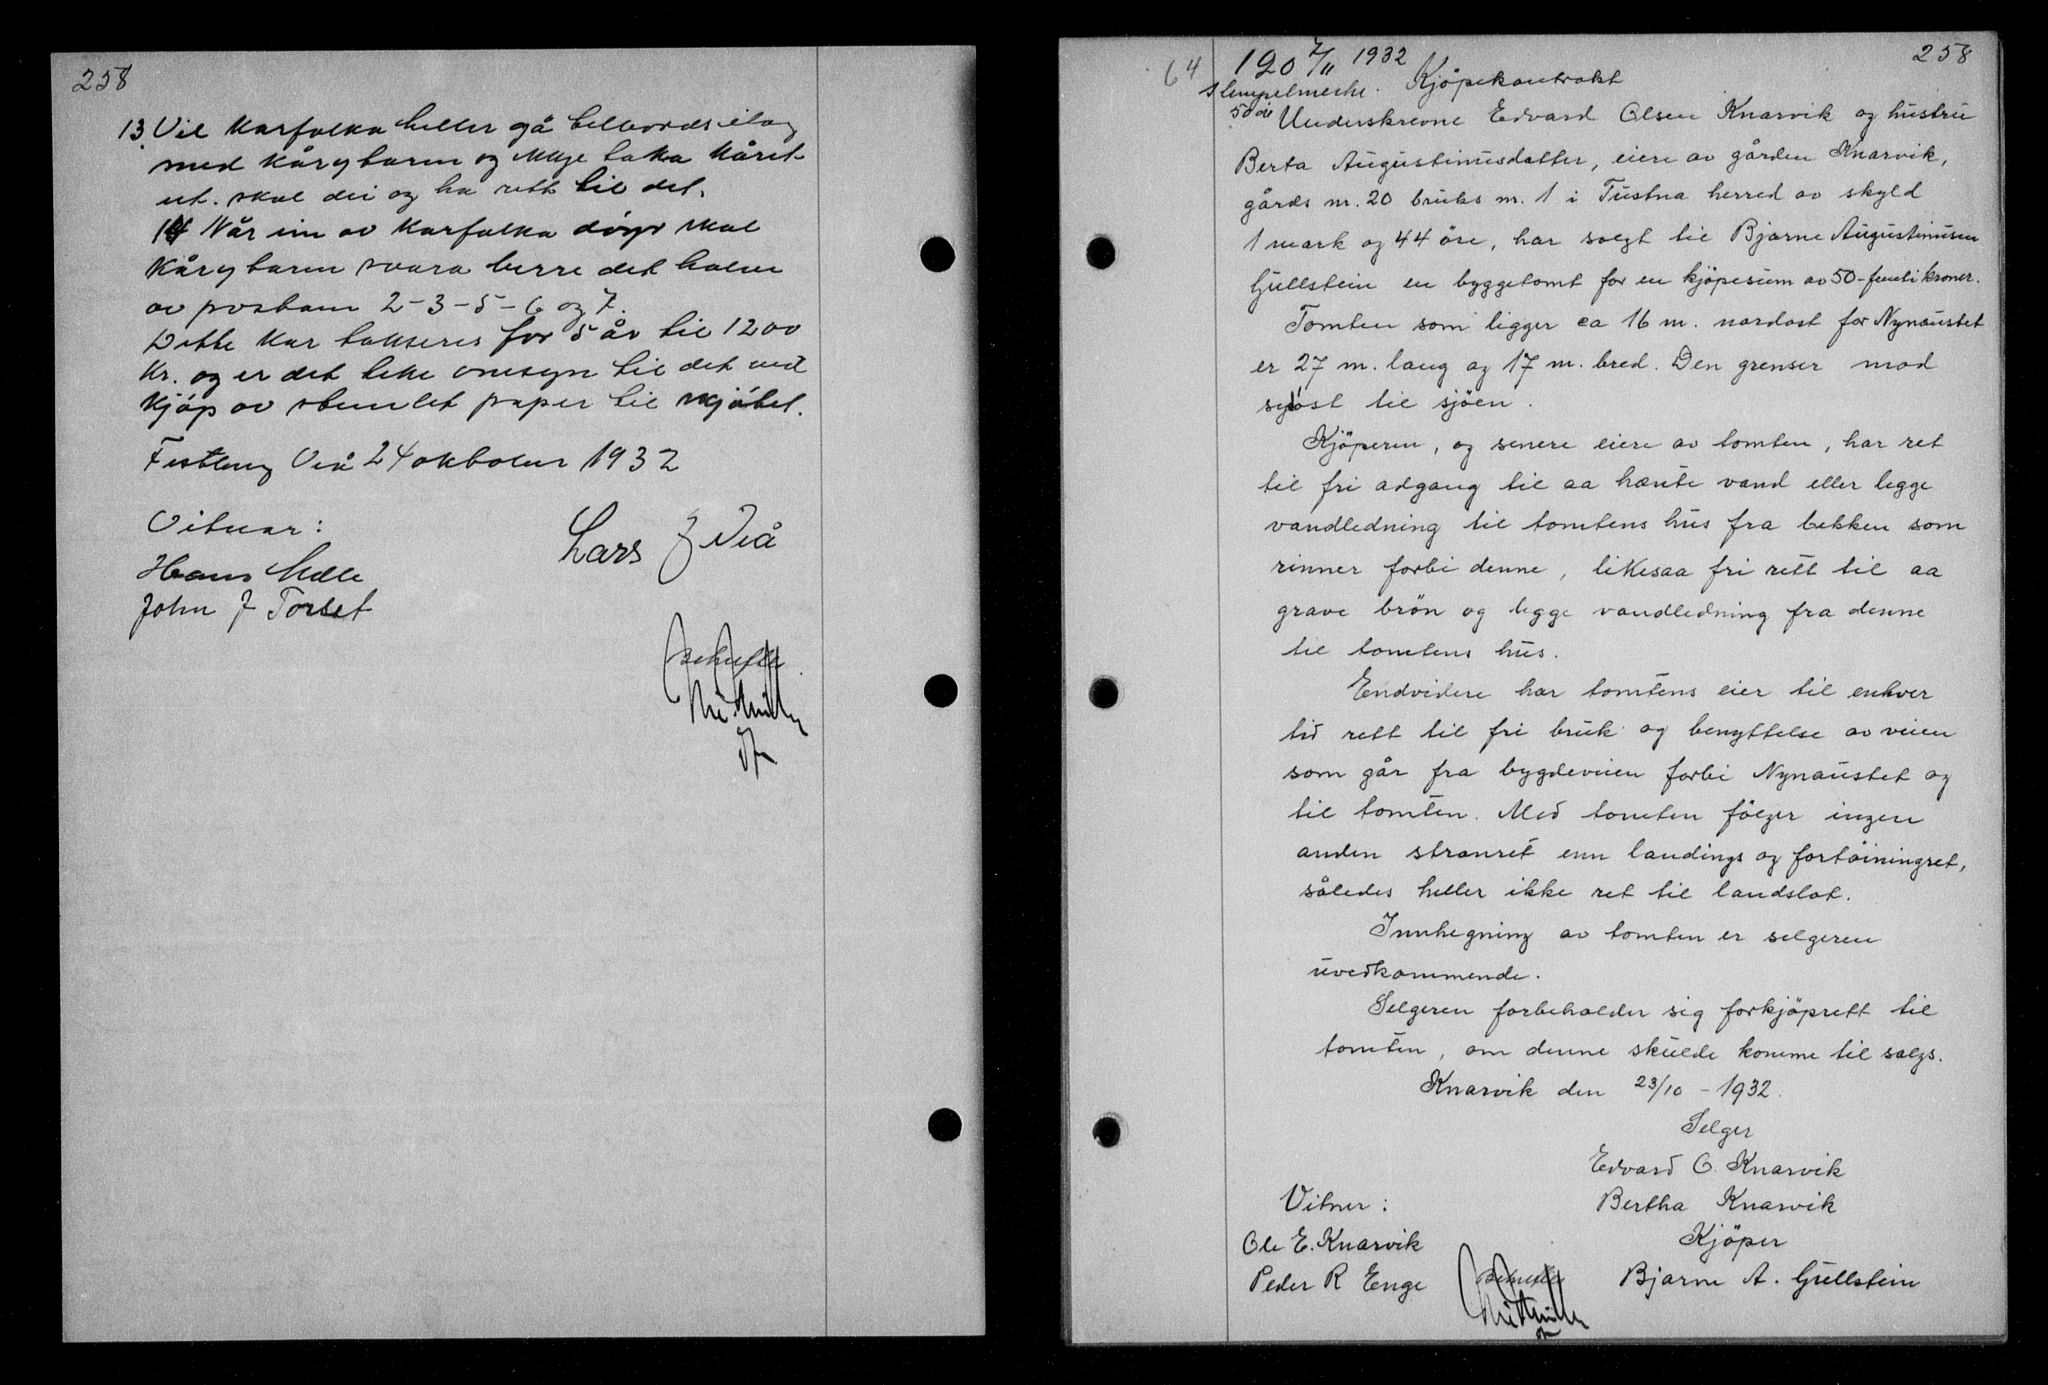 258
13. Vil karfolka heller gå tilbords ilag
med kårytaren og ikkje taka kåret
ut. skal dei og ha rett til det.
14 Når ein av karfolka døyr skal
kårytaren svara berre det halve
av postane 2-3-5-6 og 7.
Dette kar takseres for 5 år til 1200
kr. og er det teke omsyn til det ved
kjøp av stemlet paper til skjøtet.
Festtleng Viå 24 oktober 1932
Vitnar:
Lars J Viå
Hans Melle
John J Torset
64 120 7/11 1932 258
Stempelmerke. Kjöpekontrakt
50 öre Underskrevne Edvard Olsen Knarvik og hustru
Berta Augustinusdatter, eiere av gården Knarvik,
gårds nr. 20 bruks nr. 1 i Tustna herred av skyld
1 mark og 44 öre, har solgt til Bjarne Augustinusen
Gullstein en byggetomt for en kjöpesum av 50-femti kroner.
Tomten som ligger ca 16 m. nordost for Nynaustet
er 27 m. lang og 17 m. bred. Den grenser mod
sydost til sjöen.
Kjöperen, og senere eiere av tomten, har ret
til fri adgang til aa hænte vand eller legge
vandledning til tomtens hus fra bekken som
rinner forbi denne, likesaa fri rett til aa
grave brön og legge vandledning fra denne
til tomtens hus.
Endvidere har tomtens eier til enhver
tid rett til fri bruk og benyttelse av veien
som går fra bygdeveien forbi Nynaustet og
til tomten. Med tomten fölger ingen
anden stranret enn landings og fortöiningret,
således heller ikke ret til landslot.
Innhegning av tomten er selgeren
uvedkommende.
Selgeren forbeholder sig forkjöprett til
tomten, om denne skulde komme til salgs.
Knarvik den 23/10 - 1932.
Selger
Edvard O. Knarvik
Vitner: Bertha Knarvik
Ole E. Knarvik Kjöper
Peder R Enge Bjarne A. Gullstein